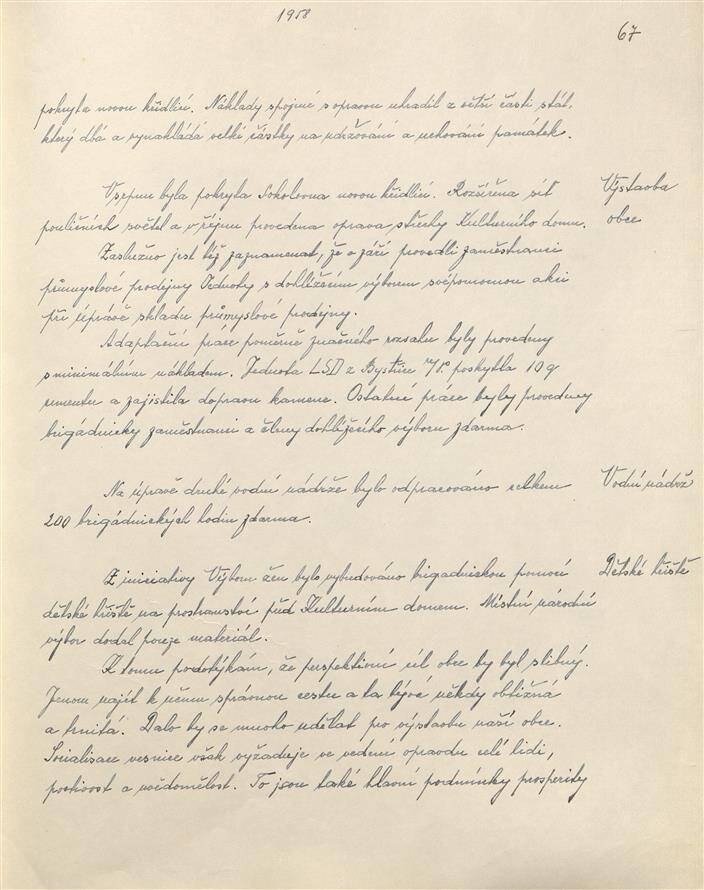 1958
67
pokryta novou křidlií. Náklady spojené s opravou uhradil z větší části stát,
který dbá a vynakládá velké částky na udržování a uchování památek.
V srpnu byla pokryta Sokolovna novou křidlií. Rozšířena síť
Výstavba
pouličních světel a v říjnu provedena oprava střechy Kulturního domu.
obce
Záslužno jest též zaznamenat, že v září provedli zaměstnanci
průmyslové prodejny Jednoty s dohlížecím výborem svépomocnou akci
při úpravě skladu průmyslové prodejny.
Adaptační práce poměrně značného rozsahu byly provedeny
s minimálním nákladem. Jednota LSD z Bystřice n/P. poskytla 10 q
cementu a zajistila dopravu kamene. Ostatní práce byly provedeny
brigádnicky zaměstnanci a členy dohlížecího výboru zdarma.
Na úpravě druhé vodní nádrže bylo odpracováno celkem
Vodní nádrž
200 brigádnických hodin zdarma.
Z iniciativy Výboru žen bylo vybudováno brigádnickou pomocí
Dětské hřiště
dětské hřiště na prostranství před Kulturním domem. Místní národní
výbor dodal pouze materiál.
K tomu podotýkám, že perspektivní cíl obce by byl slibný.
Jenom najít k němu správnou cestu a ta bývá někdy obtížná
a trnitá. Dalo by se mnoho udělat pro výstavbu naší obce.
Socialisace vesnice však vyžaduje ve vedení opravdu celé lidi,
poctivost a uvědomělost. To jsou také hlavní podmínky prosperity